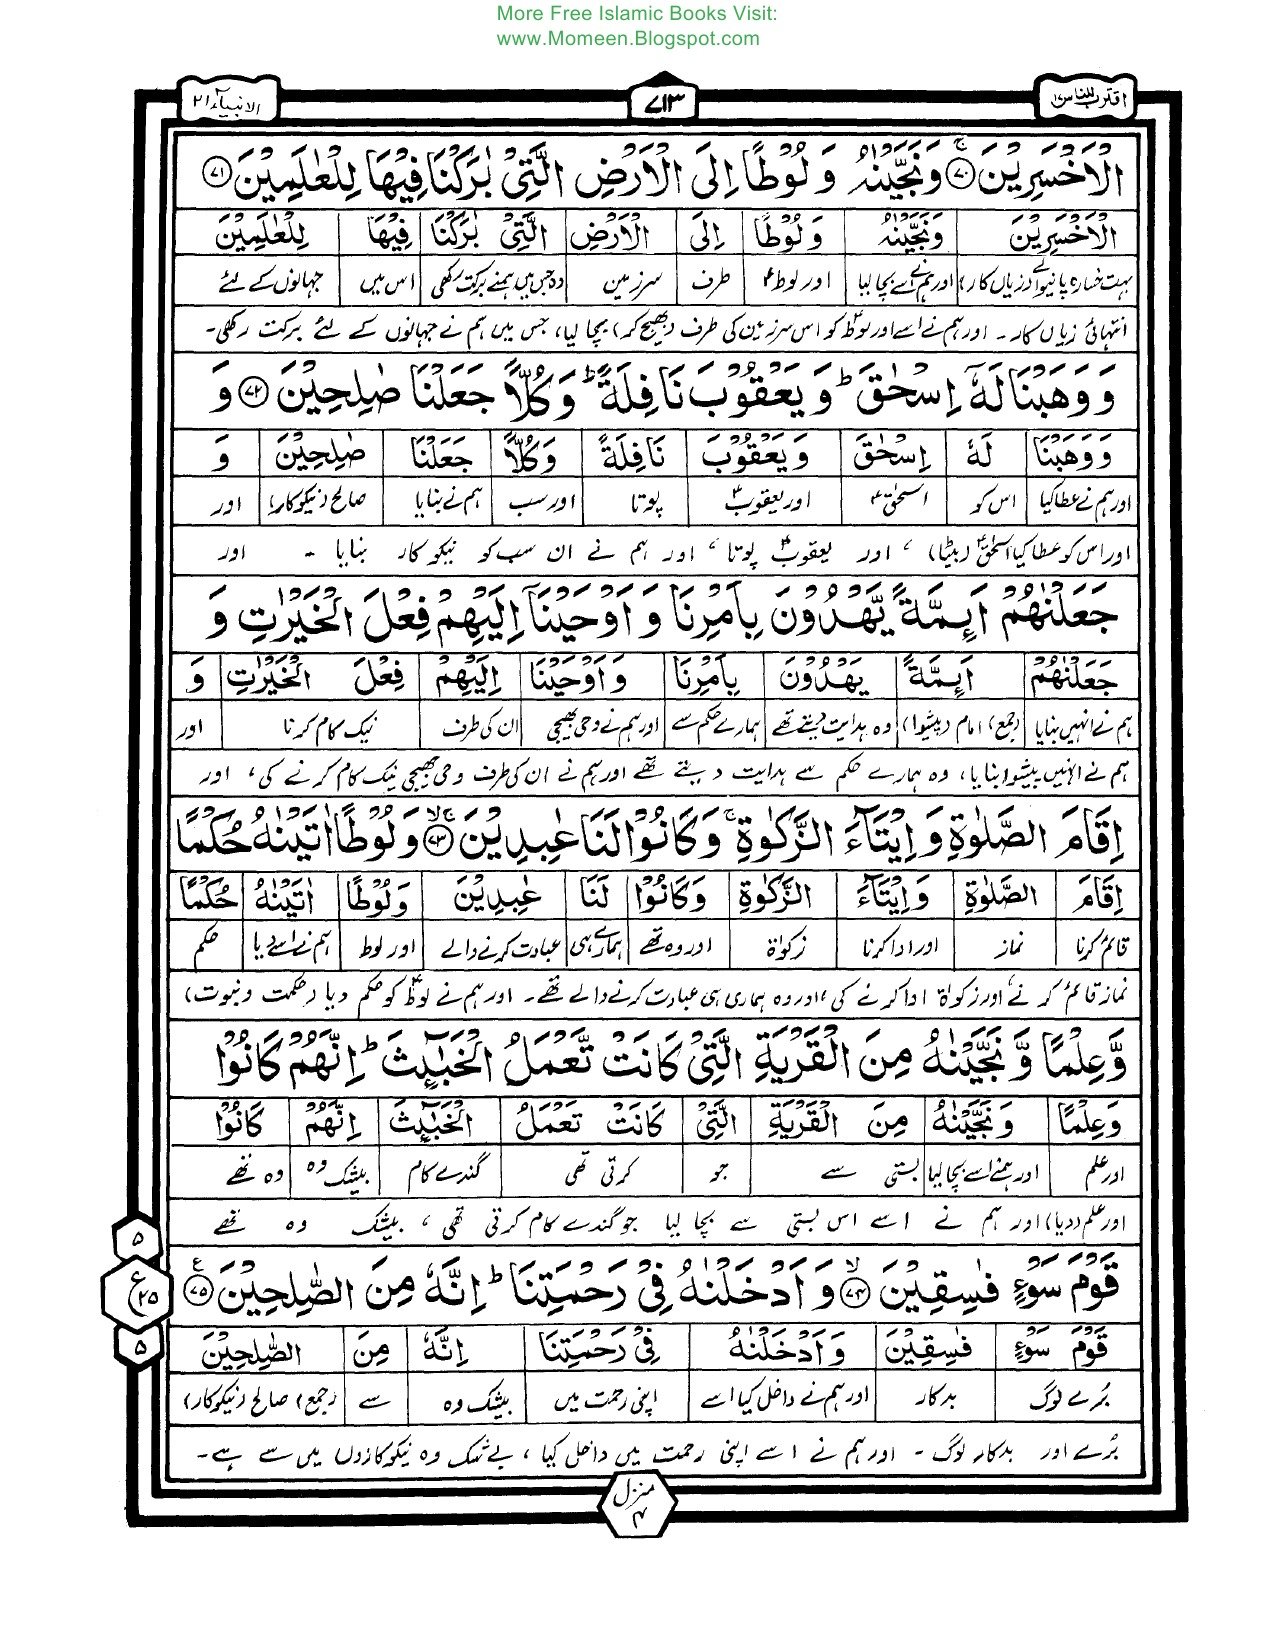 More Free Islamic Books Visit:
www.Momeen.Blogspot.com
اقترب للناس ۱۷
۷۱۳
الانبیآء ۲۱
الْاَخْسَرِیْنَ ۚ۷۰ وَنَجَّیْنٰهُ وَ لُوْطًا اِلَی الْاَرْضِ الَّتِیْ بٰرَكْنَا فِیْهَا لِلْعٰلَمِیْنَ ۷۱
الْاَخْسَرِیْنَ وَنَجَّیْنٰهُ وَ لُوْطًا اِلَی الْاَرْضِ الَّتِیْ بٰرَكْنَا فِیْهَا لِلْعٰلَمِیْنَ
بہت خسارہ پانیوالے (زیاں کار) اور ہم نے اسے بچا لیا اور لوطؑ طرف سرزمین وہ جس میں ہمنے برکت رکھی اس میں جہانوں کے لئے
انتہائی زیاں کار۔ اور ہم نے اسے اور لوطؑ کو اس سرزمین کی طرف (بھیج کر) بچا لیا، جس میں ہم نے جہانوں کے لئے برکت رکھی۔
وَ وَهَبْنَا لَهٗۤ اِسْحٰقَ ؕ وَ یَعْقُوْبَ نَافِلَةً ؕ وَ كُلًّا جَعَلْنَا صٰلِحِیْنَ ۷۲ وَ
وَ وَهَبْنَا لَهٗ اِسْحٰقَ وَ یَعْقُوْبَ نَافِلَةً وَ كُلًّا جَعَلْنَا صٰلِحِیْنَ وَ
اور ہم نے عطا کیا اس کو اسحٰقؑ اور یعقوبؑ پوتا اور سب ہم نے بنایا صالح (نیکو کار) اور
اور اس کو عطا کیا اسحٰقؑ (بیٹا) ، اور یعقوبؑ پوتا ، اور ہم نے ان سب کو نیکو کار بنایا - اور
جَعَلْنٰهُمْ اَىِٕمَّةً یَّهْدُوْنَ بِاَمْرِنَا وَ اَوْحَیْنَاۤ اِلَیْهِمْ فِعْلَ الْخَیْرٰتِ وَ
جَعَلْنٰهُمْ اَىِٕمَّةً یَهْدُوْنَ بِاَمْرِنَا وَ اَوْحَیْنَا اِلَیْهِمْ فِعْلَ الْخَیْرٰتِ وَ
ہم نے انہیں بنایا (جمع) امام (پیشوا) وہ ہدایت دیتے تھے ہمارے حکم سے اور ہم نے وحی بھیجی ان کی طرف نیک کام کرنا اور
ہم نے انہیں پیشوا بنایا، وہ ہمارے حکم سے ہدایت دیتے تھے اور ہم نے ان کی طرف وحی بھیجی نیک کام کرنے کی، اور
اِقَامَ الصَّلٰوةِ وَ اِیْتَآءَ الزَّكٰوةِ ۚ وَ كَانُوْا لَنَا عٰبِدِیْنَ ۚۙ۷۳ وَ لُوْطًا اٰتَیْنٰهُ حُكْمًا
اِقَامَ الصَّلٰوةِ وَ اِیْتَآءَ الزَّكٰوةِ وَ كَانُوْا لَنَا عٰبِدِیْنَ وَ لُوْطًا اٰتَیْنٰهُ حُكْمًا
قائم کرنا نماز اور ادا کرنا زکوٰۃ اور وہ تھے ہمارے ہی عبادت کرنے والے اور لوط ہم نے اسے دیا حکم
نماز قائم کرنے اور زکوٰۃ ادا کرنے کی ، اور وہ ہماری ہی عبادت کرنے والے تھے۔ اور ہم نے لوطؑ کو حکم دیا (حکمت و نبوت)
وَّ عِلْمًا وَّ نَجَّیْنٰهُ مِنَ الْقَرْیَةِ الَّتِیْ كَانَتْ تَّعْمَلُ الْخَبٰٓىِٕثَ ؕ اِنَّهُمْ كَانُوْا
وَ عِلْمًا وَ نَجَّیْنٰهُ مِنَ الْقَرْیَةِ الَّتِیْ كَانَتْ تَعْمَلُ الْخَبٰٓىِٕثَ اِنَّهُمْ كَانُوْا
اور علم اور ہمنے اسے بچا لیا بستی سے جو کرتی تھی گندے کام بیشک وہ وہ تھے
اور علم (دیا) اور ہم نے اسے اس بستی سے بچا لیا جو گندے کام کرتی تھی ، بیشک وہ تھے
قَوْمَ سَوْءٍ فٰسِقِیْنَ ۙ۷۴ وَ اَدْخَلْنٰهُ فِیْ رَحْمَتِنَا ؕ اِنَّهٗ مِنَ الصّٰلِحِیْنَ ۷۵ع
قَوْمَ سَوْءٍ فٰسِقِیْنَ وَ اَدْخَلْنٰهُ فِیْ رَحْمَتِنَا اِنَّهٗ مِنَ الصّٰلِحِیْنَ
بُرے لوگ بدکار اور ہم نے داخل کیا اسے اپنی رحمت میں بیشک وہ سے (جمع) صالح (نیکو کار)
بُرے اور بدکار لوگ - اور ہم نے اسے اپنی رحمت میں داخل کیا ، بے شک وہ نیکو کاروں میں سے ہے۔
۵
ع ۲۵
۵
منزل ۴